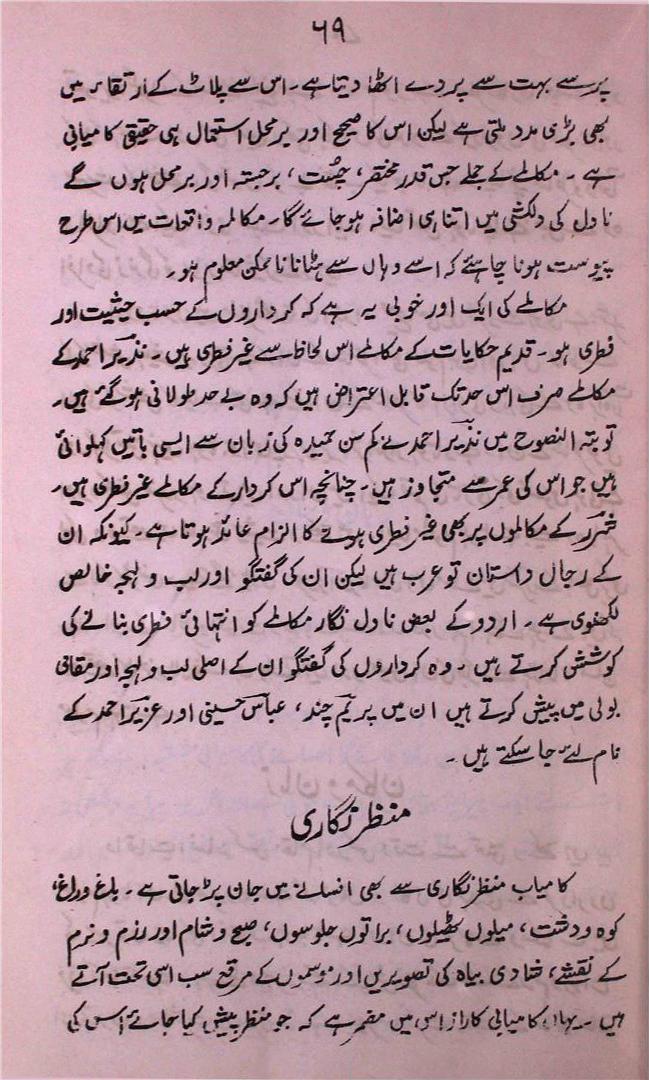 ۶۹
پر سے بہت سے پردے اٹھا دیتا ہے۔ اس سے پلاٹ کے ارتقاء میں
بھی بڑی مدد ملتی ہے لیکن اس کا صحیح اور برمحل استعمال ہی حقیقی کامیابی
ہے۔ مکالمے کے جملے جس قدر مختصر، چست، برجستہ اور برمحل ہوں گے
ناول کی دلکشی میں اتنا ہی اضافہ ہوجائے گا۔ مکالمہ واقعات میں اس طرح
پیوست ہونا چاہئے کہ اسے وہاں سے ہٹانا ناممکن معلوم ہو۔
مکالمے کی ایک اور خوبی یہ ہے کہ کرداروں کے حسب حیثیت اور
فطری ہو۔ قدیم حکایات کے مکالمے اس لحاظ سے غیر فطری ہیں۔ نذیر احمد کے
مکالمے صرف اس حد تک قابل اعتراض ہیں کہ وہ بے حد طولانی ہوگئے ہیں۔
توبتہ النصوح میں نذیر احمد نے کم سن حمیدہ کی زبان سے ایسی باتیں کہلوائی
ہیں جو اس کی عمر سے متجاوز ہیں۔ چنانچہ اس کردار کے مکالمے غیر فطری ہیں۔
شرر کے مکالموں پر بھی غیر فطری ہونے کا الزام عائد ہوتا ہے۔ کیونکہ ان
کے رجال داستان تو عرب ہیں لیکن ان کی گفتگو اور لب و لہجہ خالص
لکھنوی ہے۔ اردو کے بعض ناول نگار مکالمے کو انتہائی فطری بنانے کی
کوشش کرتے ہیں۔ وہ کرداروں کی گفتگو ان کے اصلی لب و لہجہ اور مقامی
بولی میں پیش کرتے ہیں ان میں پریم چند، عباس حسینی اور عزیز احمد کے
نام لئے جا سکتے ہیں۔
منظر نگاری
کامیاب منظر نگاری سے بھی افسانے میں جان پڑ جاتی ہے۔ باغ و راغ،
کوہ و دشت، میلوں ٹھیلوں، براتوں جلوسوں، صبح و شام اور رزم و بزم
کے نقشے، شادی بیاہ کی تصویریں اور موسموں کے مرقع سب اسی تحت آتے
ہیں۔ یہاں کامیابی کا راز اسی میں مضمر ہے کہ جو منظر پیش کیا جائے اس کی